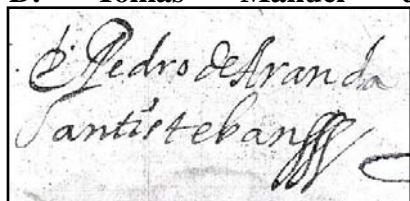 D. Tomás Manuel
D. Pedro de Aranda
Santisteban